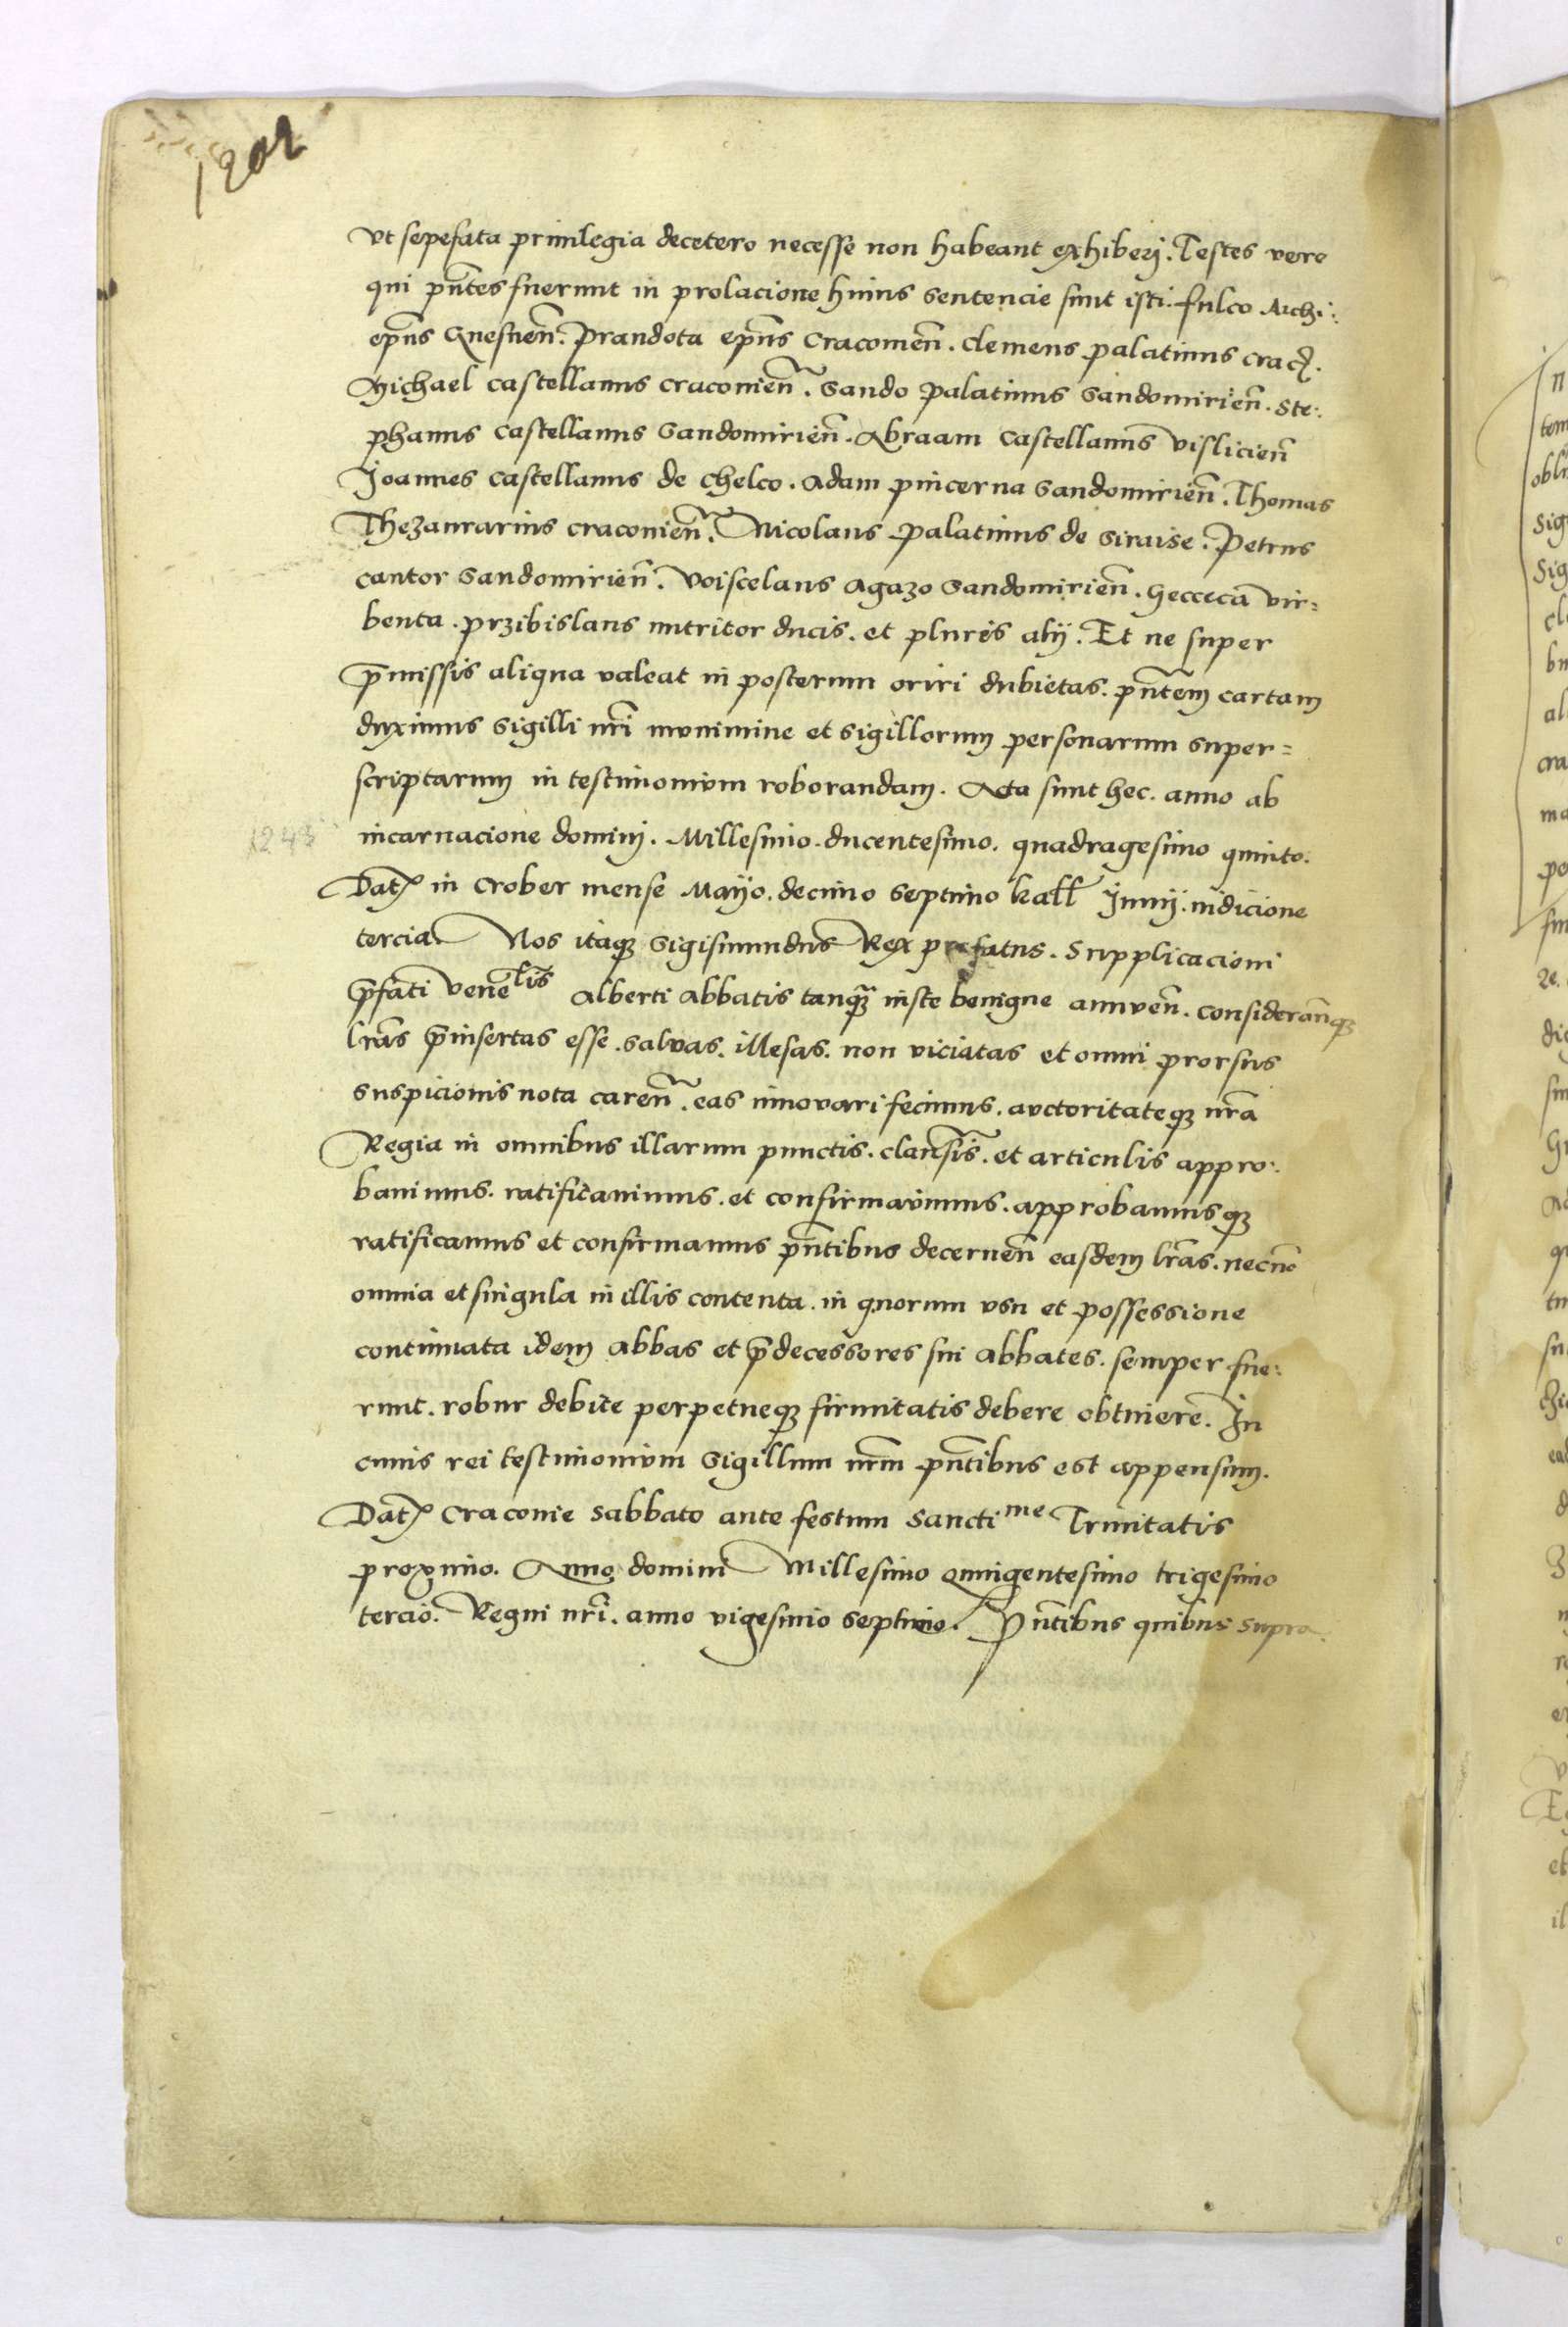 1202
Vt sepefata priuilegia decetero necesse non habeant exhiberj. Testes vero
qui pñtes fuerunt in prolacione huius sentencie sunt isti. fulco Archi:
epũs Gnesneñ. Prandota epũs Cracouieñ. Clemens palatinus crac.
Michael castellanus cracouieñ. Sando palatinus Sandomirieñ. Ste:
phanus castellanus Sandomirieñ. Abraam castellanus Vislicieñ
Joannes castellanus de Chelco. Adam pincerna Sandomirieñ. Thomas
Thezaurarius cracouieñ. Nicolaus palatinus de Siraise. Petrus
cantor Sandomirieñ. Voiscelaus Agazo Sandomirieñ. Geccecã Vir=
benta. Przibislaus nutritor ducis. et pluris alij. Et ne super
p̃missis aliqua valeat in posterum oriri dubietas. pñtem cartam
duximus sigilli nr̃i munimine et sigillorum personarum super=
scriptarum in testimonium roborandam. Acta sunt hec. anno ab
1243 incarnacione dominj. Millesimo. ducentesimo. quadragesimo quinto.
Dat in Crober mense Mayo. decimo septimo kall̃ Junij. indicione
tercia. Nos itaq₃ Sigismundus Rex prefatus. Supplicacioni
p̃fati Vene^lis Alberti Abbatis tanq̃₃ iuste benigne annueñ. considerañq₃
lr̃as p̃insertas esse. saluas. illesas. non viciatas et omni prorsus
suspicionis nota careñ. eas innovari fecimus. auctoritateq₃ nr̃a
Regia in omnibus illarum punctis. clausis̃. et articulis appro:
bauimus. ratificauimus. et confirmauimus. approbamusq₃
ratificamus et confirmamus pñtibus decerneñ easdem lr̃as. necnõ
omnia et singula in illis contenta. in quorum vsu et possessione
continuata idem Abbas et p̃decessores sui Abbates. semper fue:
runt. robur debite perpetueq₃ firmitatis debere obtinere. In
cuius rei testimonium Sigillum nr̃m pñtibus est appensum.
Dat Cracouie Sabbato ante festum Sancti^me Trinitatis
proximo. Anno domini Millesimo quingentesimo trigesimo
tercio. Regni nr̃i. anno vigesimo septimo. Pñtibus quibus supra.